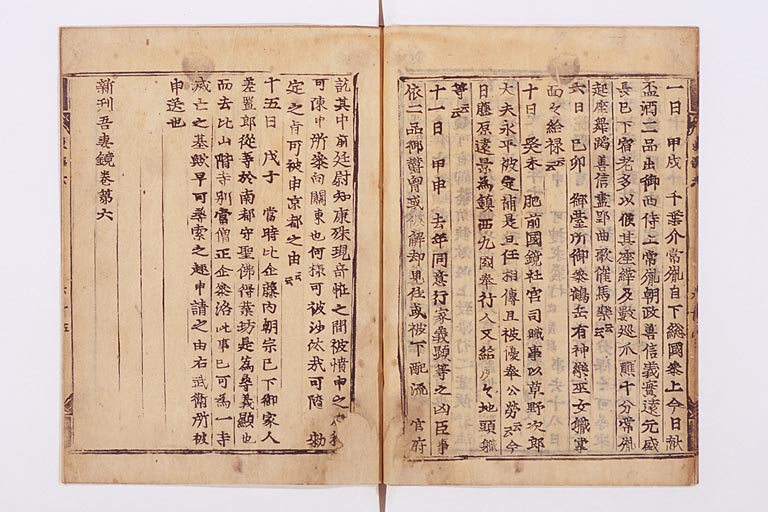 一日 甲戌 千葉介常胤自下総國参上今日献
盃酒二品出御西侍上常胤朝政善信義實遠元盛
長已下宿老多以候其座縡及数巡 十分常胤
起座舞蹈善信盡郢曲歌催馬樂云云
六日 己卯 御臺所御参鶴岳有神樂巫女職掌
面々給禄云云
十日 癸未 肥前國鏡社宮司職事以草野次郎
大夫永平被定補是且任相傳且被優奉公労云云今
日藤原遠景為鎮西九國奉行人又給所々地頭職
等云云
十一日 甲申 去年同意行家義顕等之凶臣事
依二品御欝胷或被解却見任或被下配流 官府
訖其中前廷尉知康殊現奇恠之間被憤申之
可陳申所参向關東也何様可被沙汰哉可随 勅
定之旨可被申京都之由云云
十五日 戊子 當時比企藤内朝宗已下御家人
差置郎從等於南都守聖佛得業坊是為尋義顕也
而去比山階寺別當僧正企参洛此事已可為一寺
滅亡之基歟早可尋索之趣申請之由右武衛所被
申送也
新刊吾妻鏡巻第六